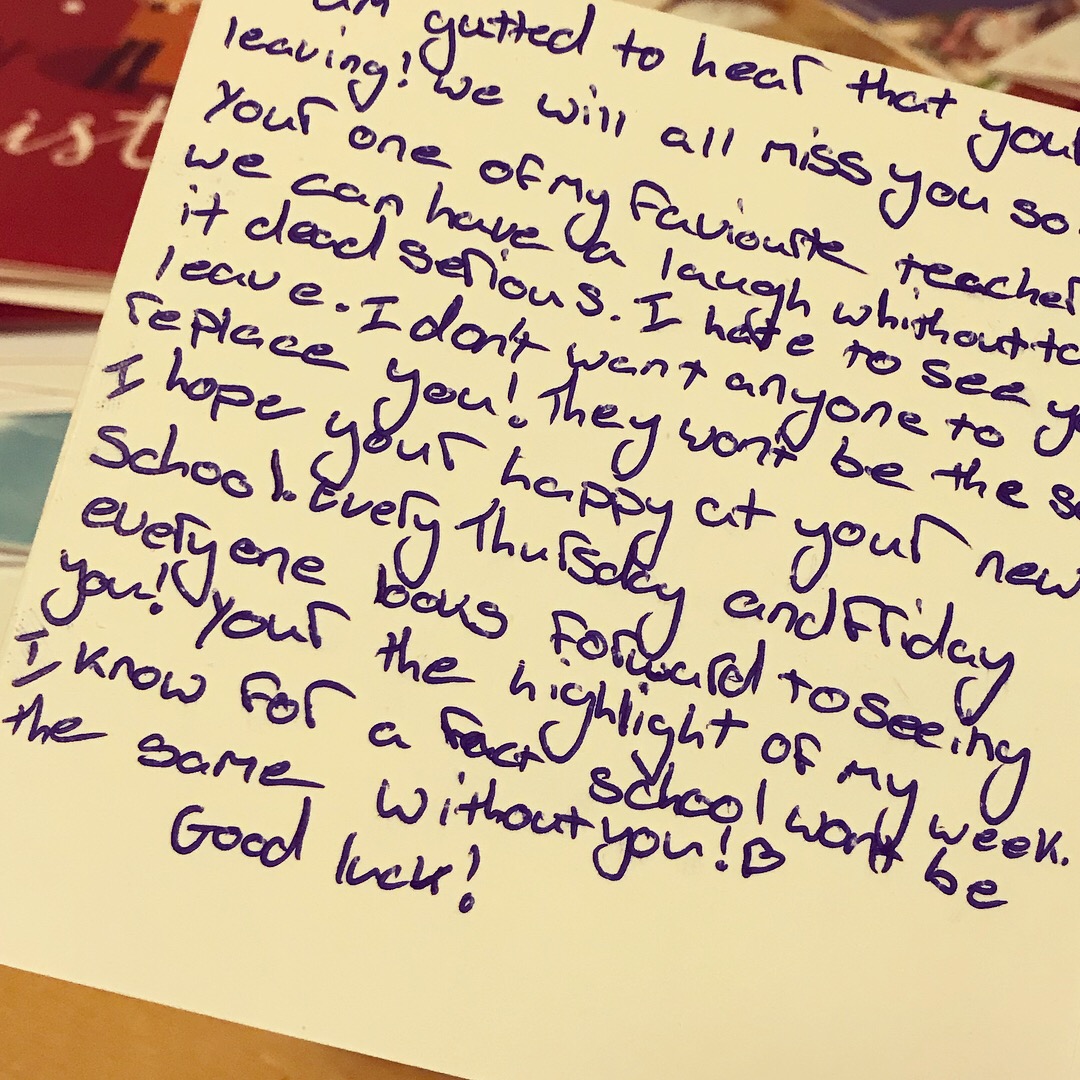 am gutted to hear that your
leaving! we will all miss you so
your one of my faviourte teacher
we can have a laugh whithout ta
it dead serious. I hate to see yo
leave. I don't want anyone to
replace you! They won't be the s
I hope your happy at your new
School. Every Thursday and Friday
everyone looks forward to seeing
you! your the highlight of my week.
I know for a fact school won't be
the same without you! ♡
Good luck!
ist